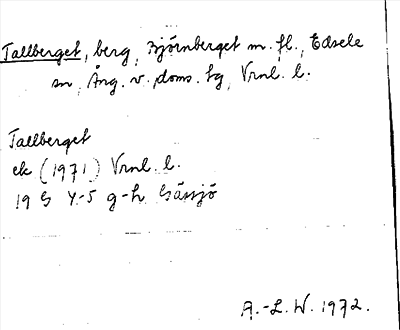 Tallberget, berg, Björnberget m. fl., Edsele
sn, Ång. v. doms. tg, Vrnl. l.
Tallberget
ek (1971) Vrnl. l.
19 G 4-5 g-h Gåssjö
A.-L. W. 1972.